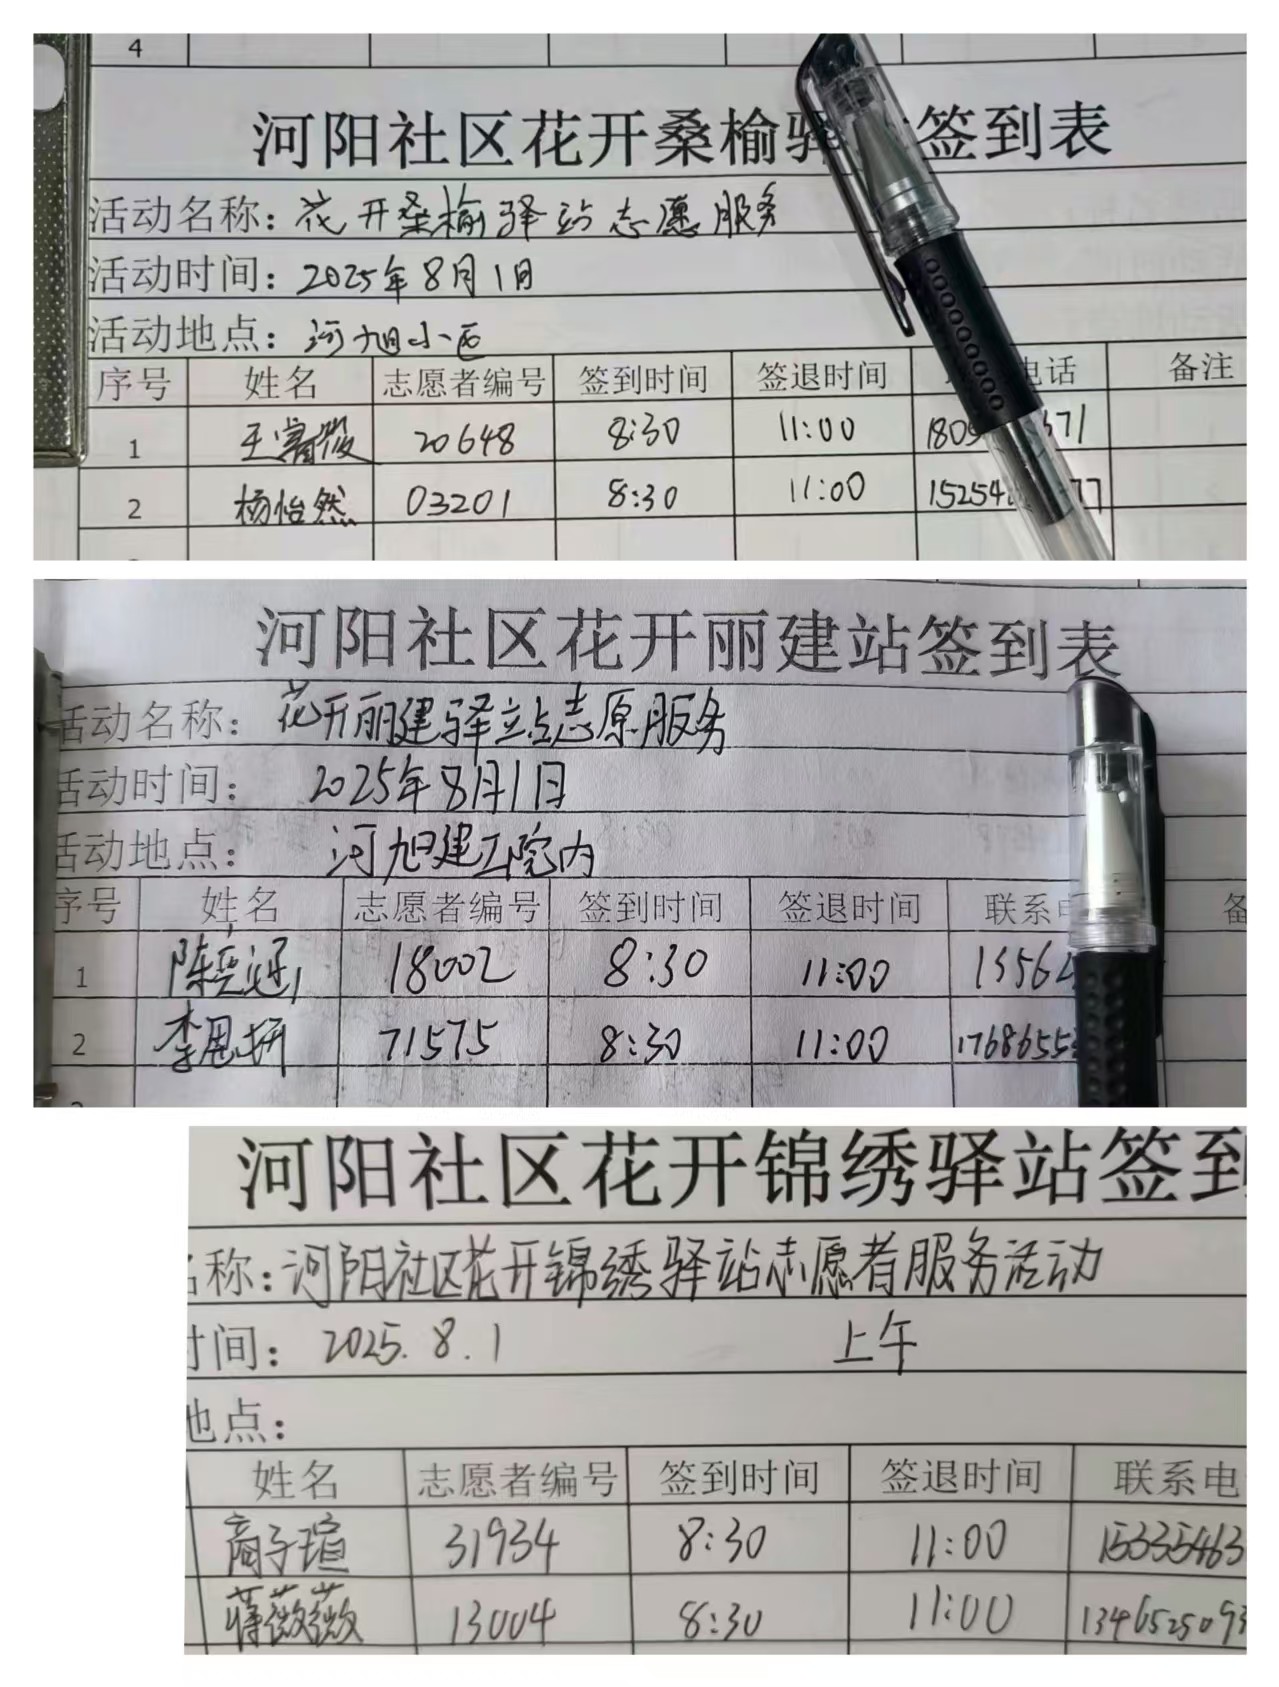 4
河阳社区花开桑榆驿 签到表
活动名称: 花开桑榆驿站志愿服务
活动时间: 2025年8月1日
活动地点: 河旭小区
序号 姓名 志愿者编号 签到时间 签退时间 电话 备注
1 王 20648 8:30 11:00 1809 571
2 杨怡然 03201 8:30 11:00 15254 77
河阳社区花开丽建站签到表
活动名称: 花开丽建驿站志愿服务
活动时间: 2025年8月1日
活动地点: 河旭建工院内
序号 姓名 志愿者编号 签到时间 签退时间 联系 备
1 陈 18002 8:30 11:00 13562
2 李思妍 71575 8:30 11:00 17686553
河阳社区花开锦绣驿站签到
名称: 河阳社区花开锦绣驿站志愿者服务活动
时间: 2025.8.1 上午
地点:
姓名 志愿者编号 签到时间 签退时间 联系电
商子瑄 31934 8:30 11:00 15335463
蒋薇薇 13004 8:30 11:00 1346525093